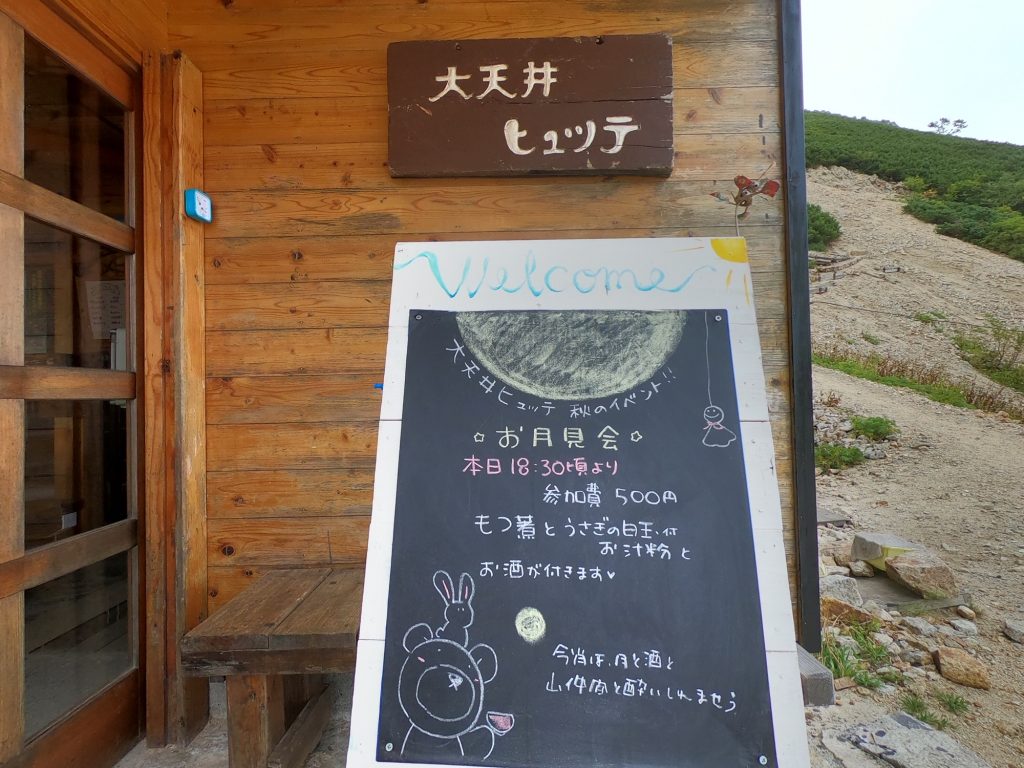 大天井
ヒュッテ
Welcome
大天井ヒュッテ 秋のイベント!!
☆お月見会☆
本日18:30頃より
参加費 500円
もつ煮とうさぎの目玉付
お汁粉と
お酒が付きます♥
今宵は、月と酒と
山仲間と酔いしれませう